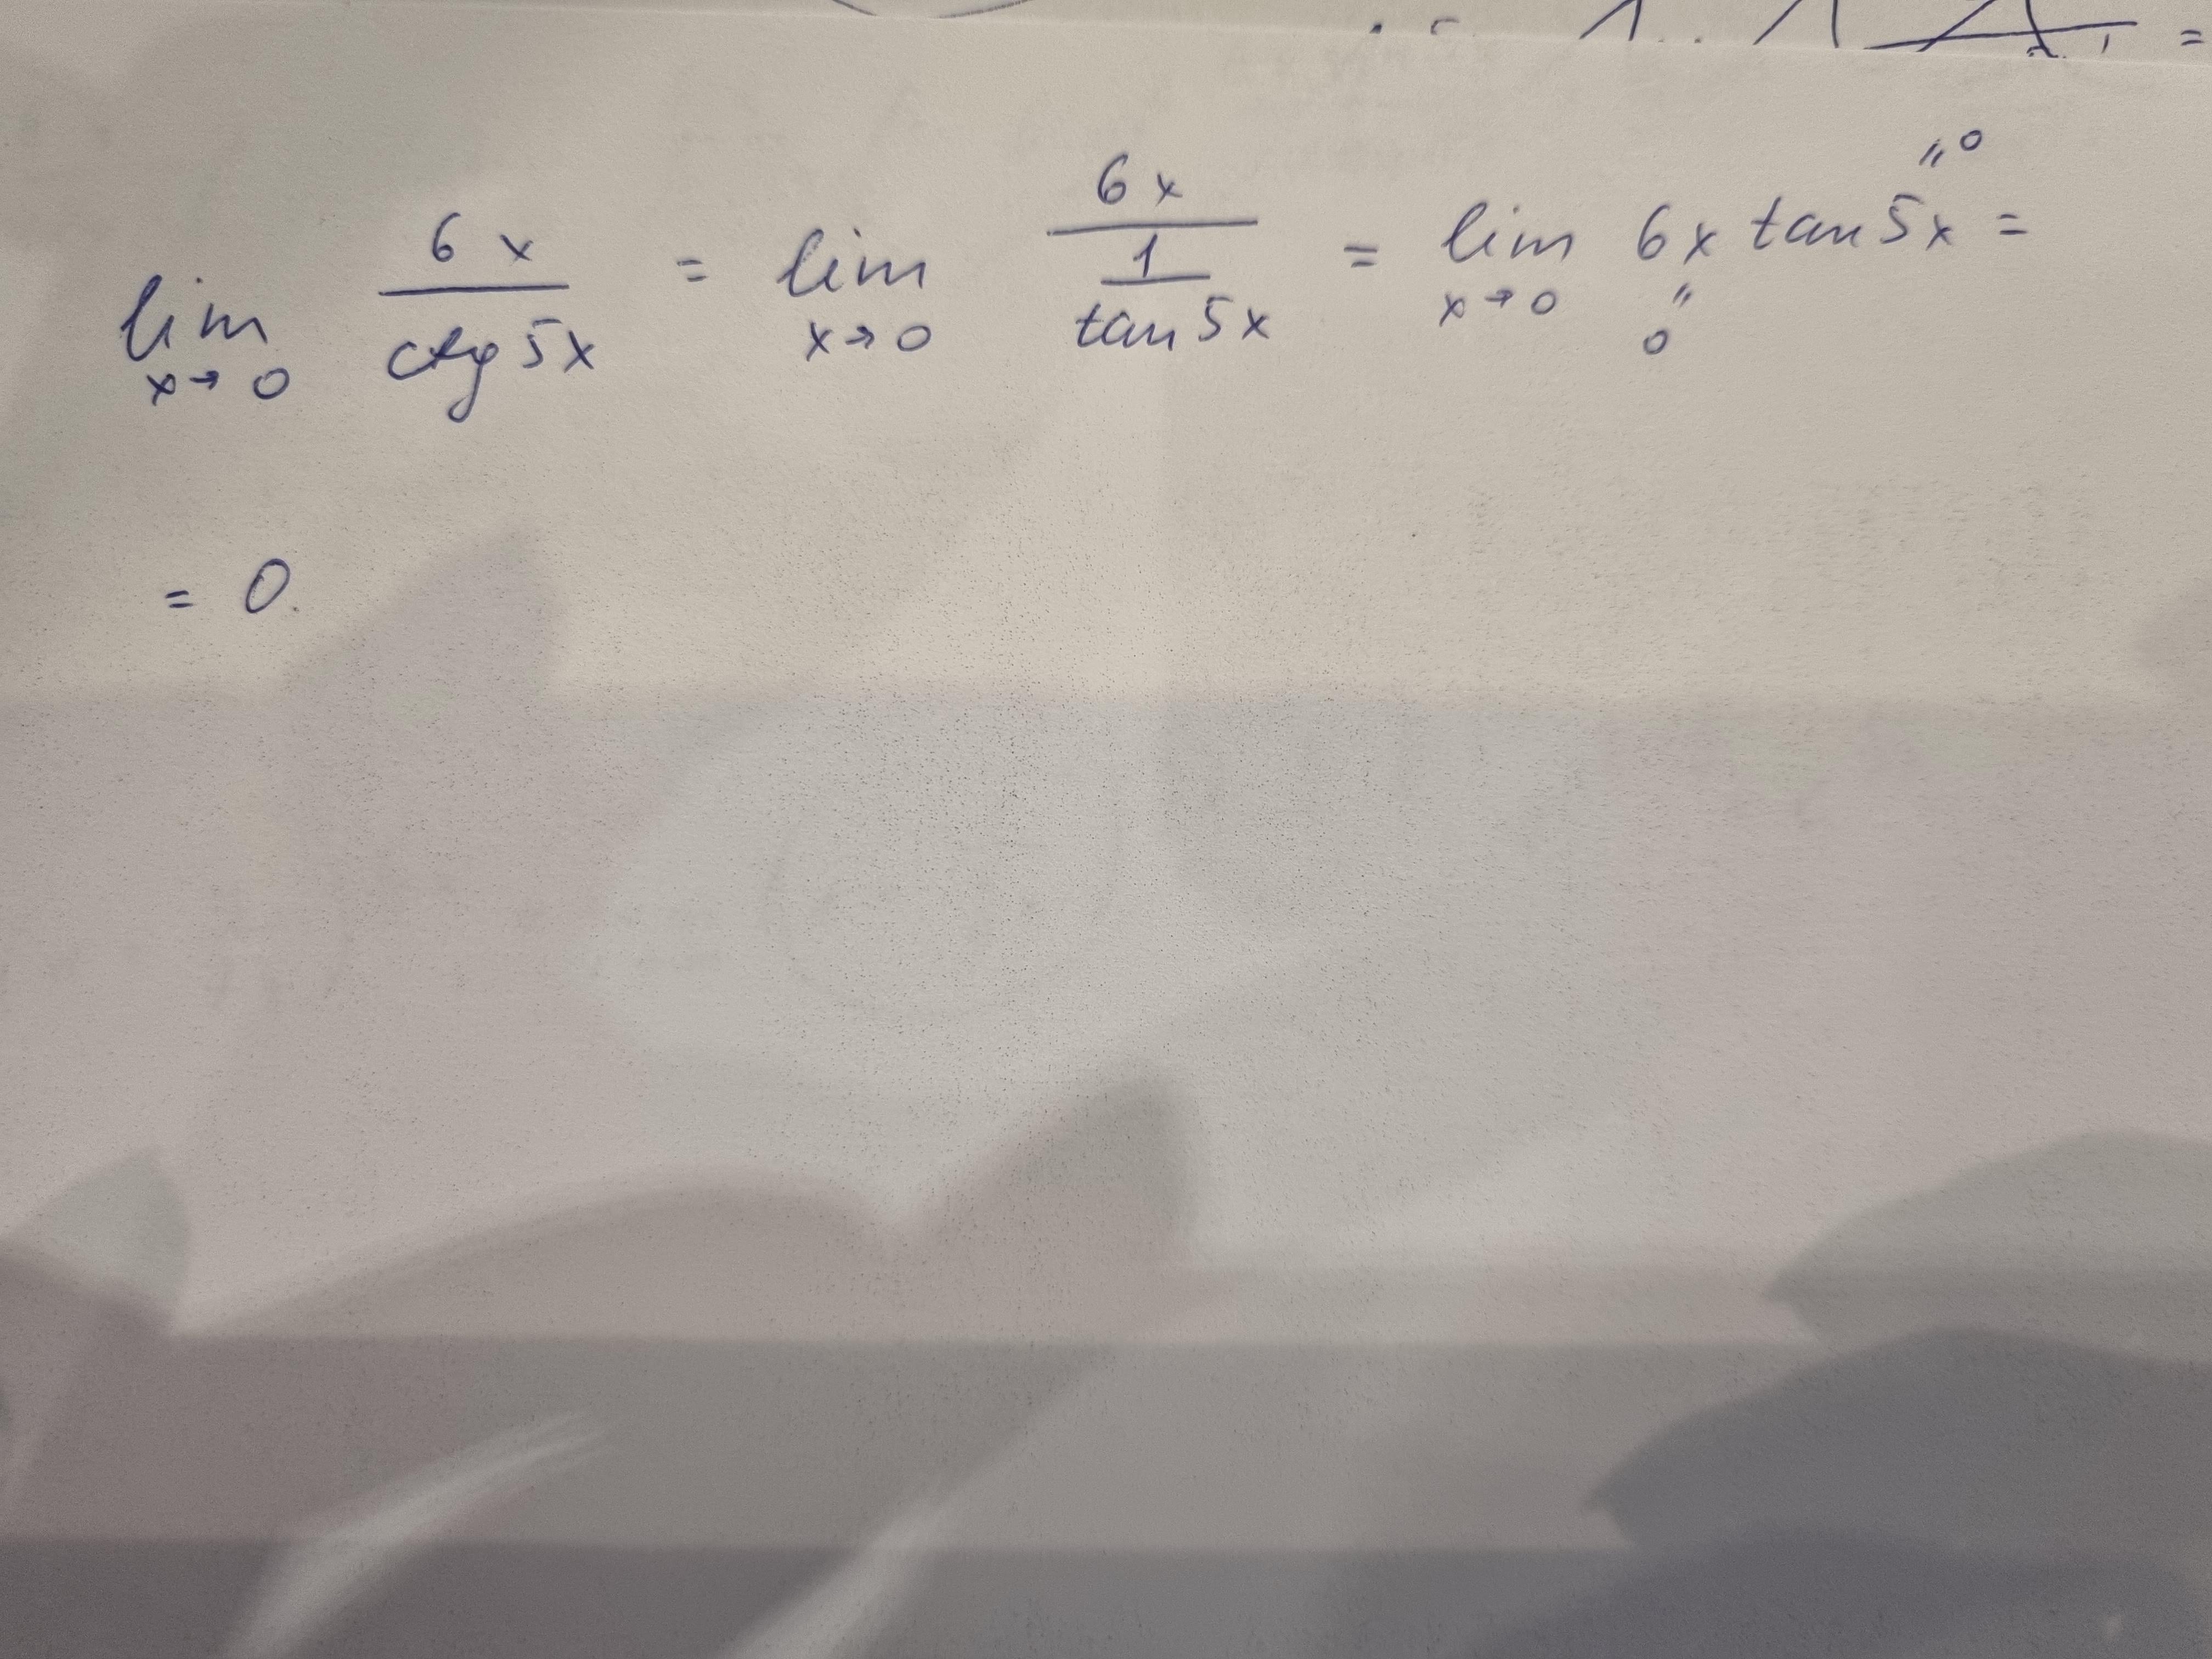 lim x→0 6x / ctg 5x = lim x→0 6x / (1 / tan 5x) = lim x→0 6x tan 5x = " 0 " 0
= 0.